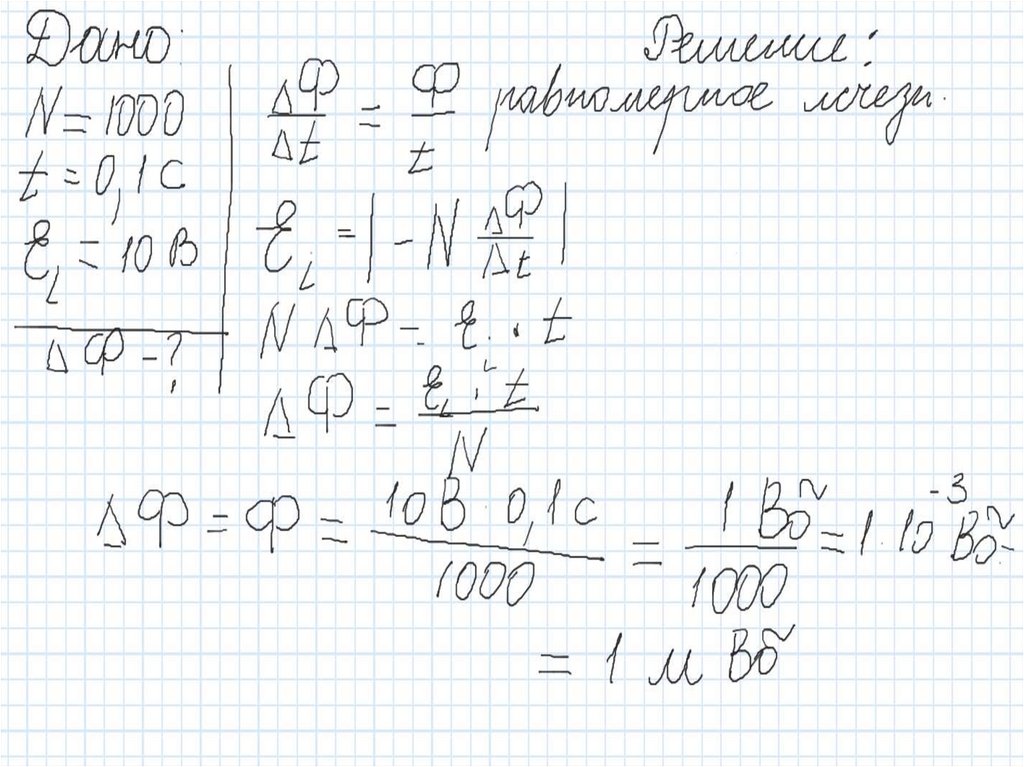 Дано:
N = 1000
t = 0,1 с
Ɛi = 10 В
ΔФ - ?
Решение:
ΔФ/Δt = Ф/t равномерное исчезн.
Ɛi = |-N ΔФ/Δt|
N ΔФ = Ɛi · t
ΔФ = Ɛi · t / N
ΔФ = Ф = 10 В · 0,1 с / 1000 = 1 Вб / 1000 = 1 · 10⁻³ Вб =
= 1 м Вб